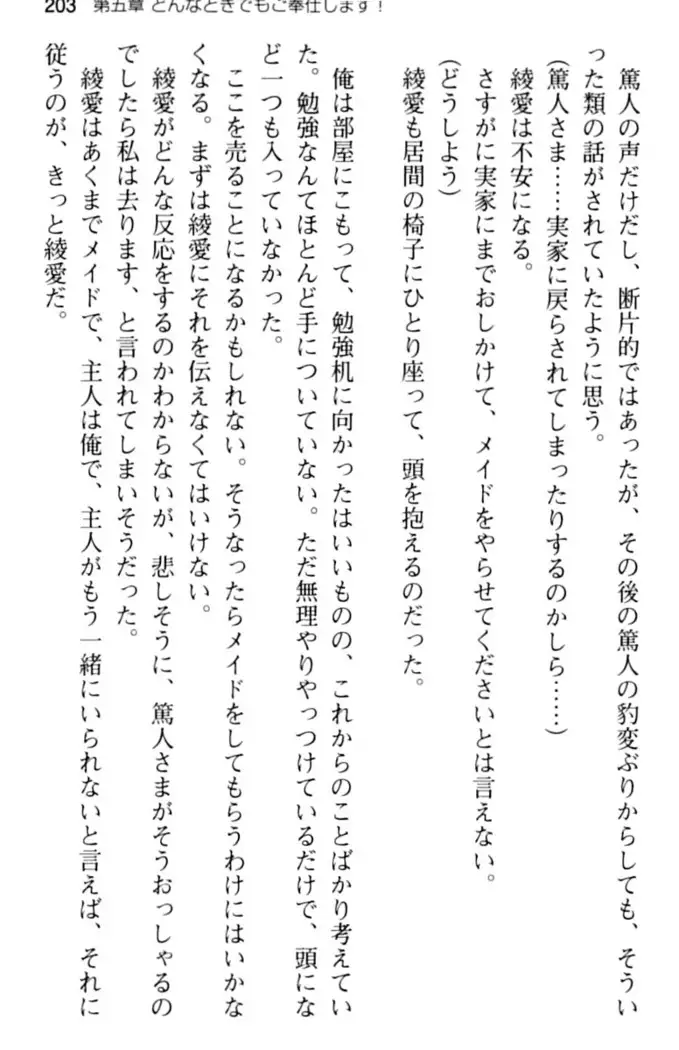 203 第五章 どんなときでもご奉仕します！
篤人の声だけだし、断片的ではあったが、その後の篤人の豹変ぶりからしても、そうい
った類の話がされていたように思う。
（篤人さま……実家に戻らされてしまったりするのかしら……）
綾愛は不安になる。
さすがに実家にまでおしかけて、メイドをやらせてくださいとは言えない。
（どうしよう）
綾愛も居間の椅子にひとり座って、頭を抱えるのだった。
俺は部屋にこもって、勉強机に向かったはいいものの、これからのことばかり考えてい
た。勉強なんてほとんど手についていない。ただ無理やりやっつけているだけで、頭にな
ど一つも入っていなかった。
ここを売ることになるかもしれない。そうなったらメイドをしてもらうわけにはいかな
くなる。まずは綾愛にそれを伝えなくてはいけない。
綾愛がどんな反応をするのかわからないが、悲しそうに、篤人さまがそうおっしゃるの
でしたら私は去ります、と言われてしまいそうだった。
綾愛はあくまでメイドで、主人は俺で、主人がもう一緒にいられないと言えば、それに
従うのが、きっと綾愛だ。